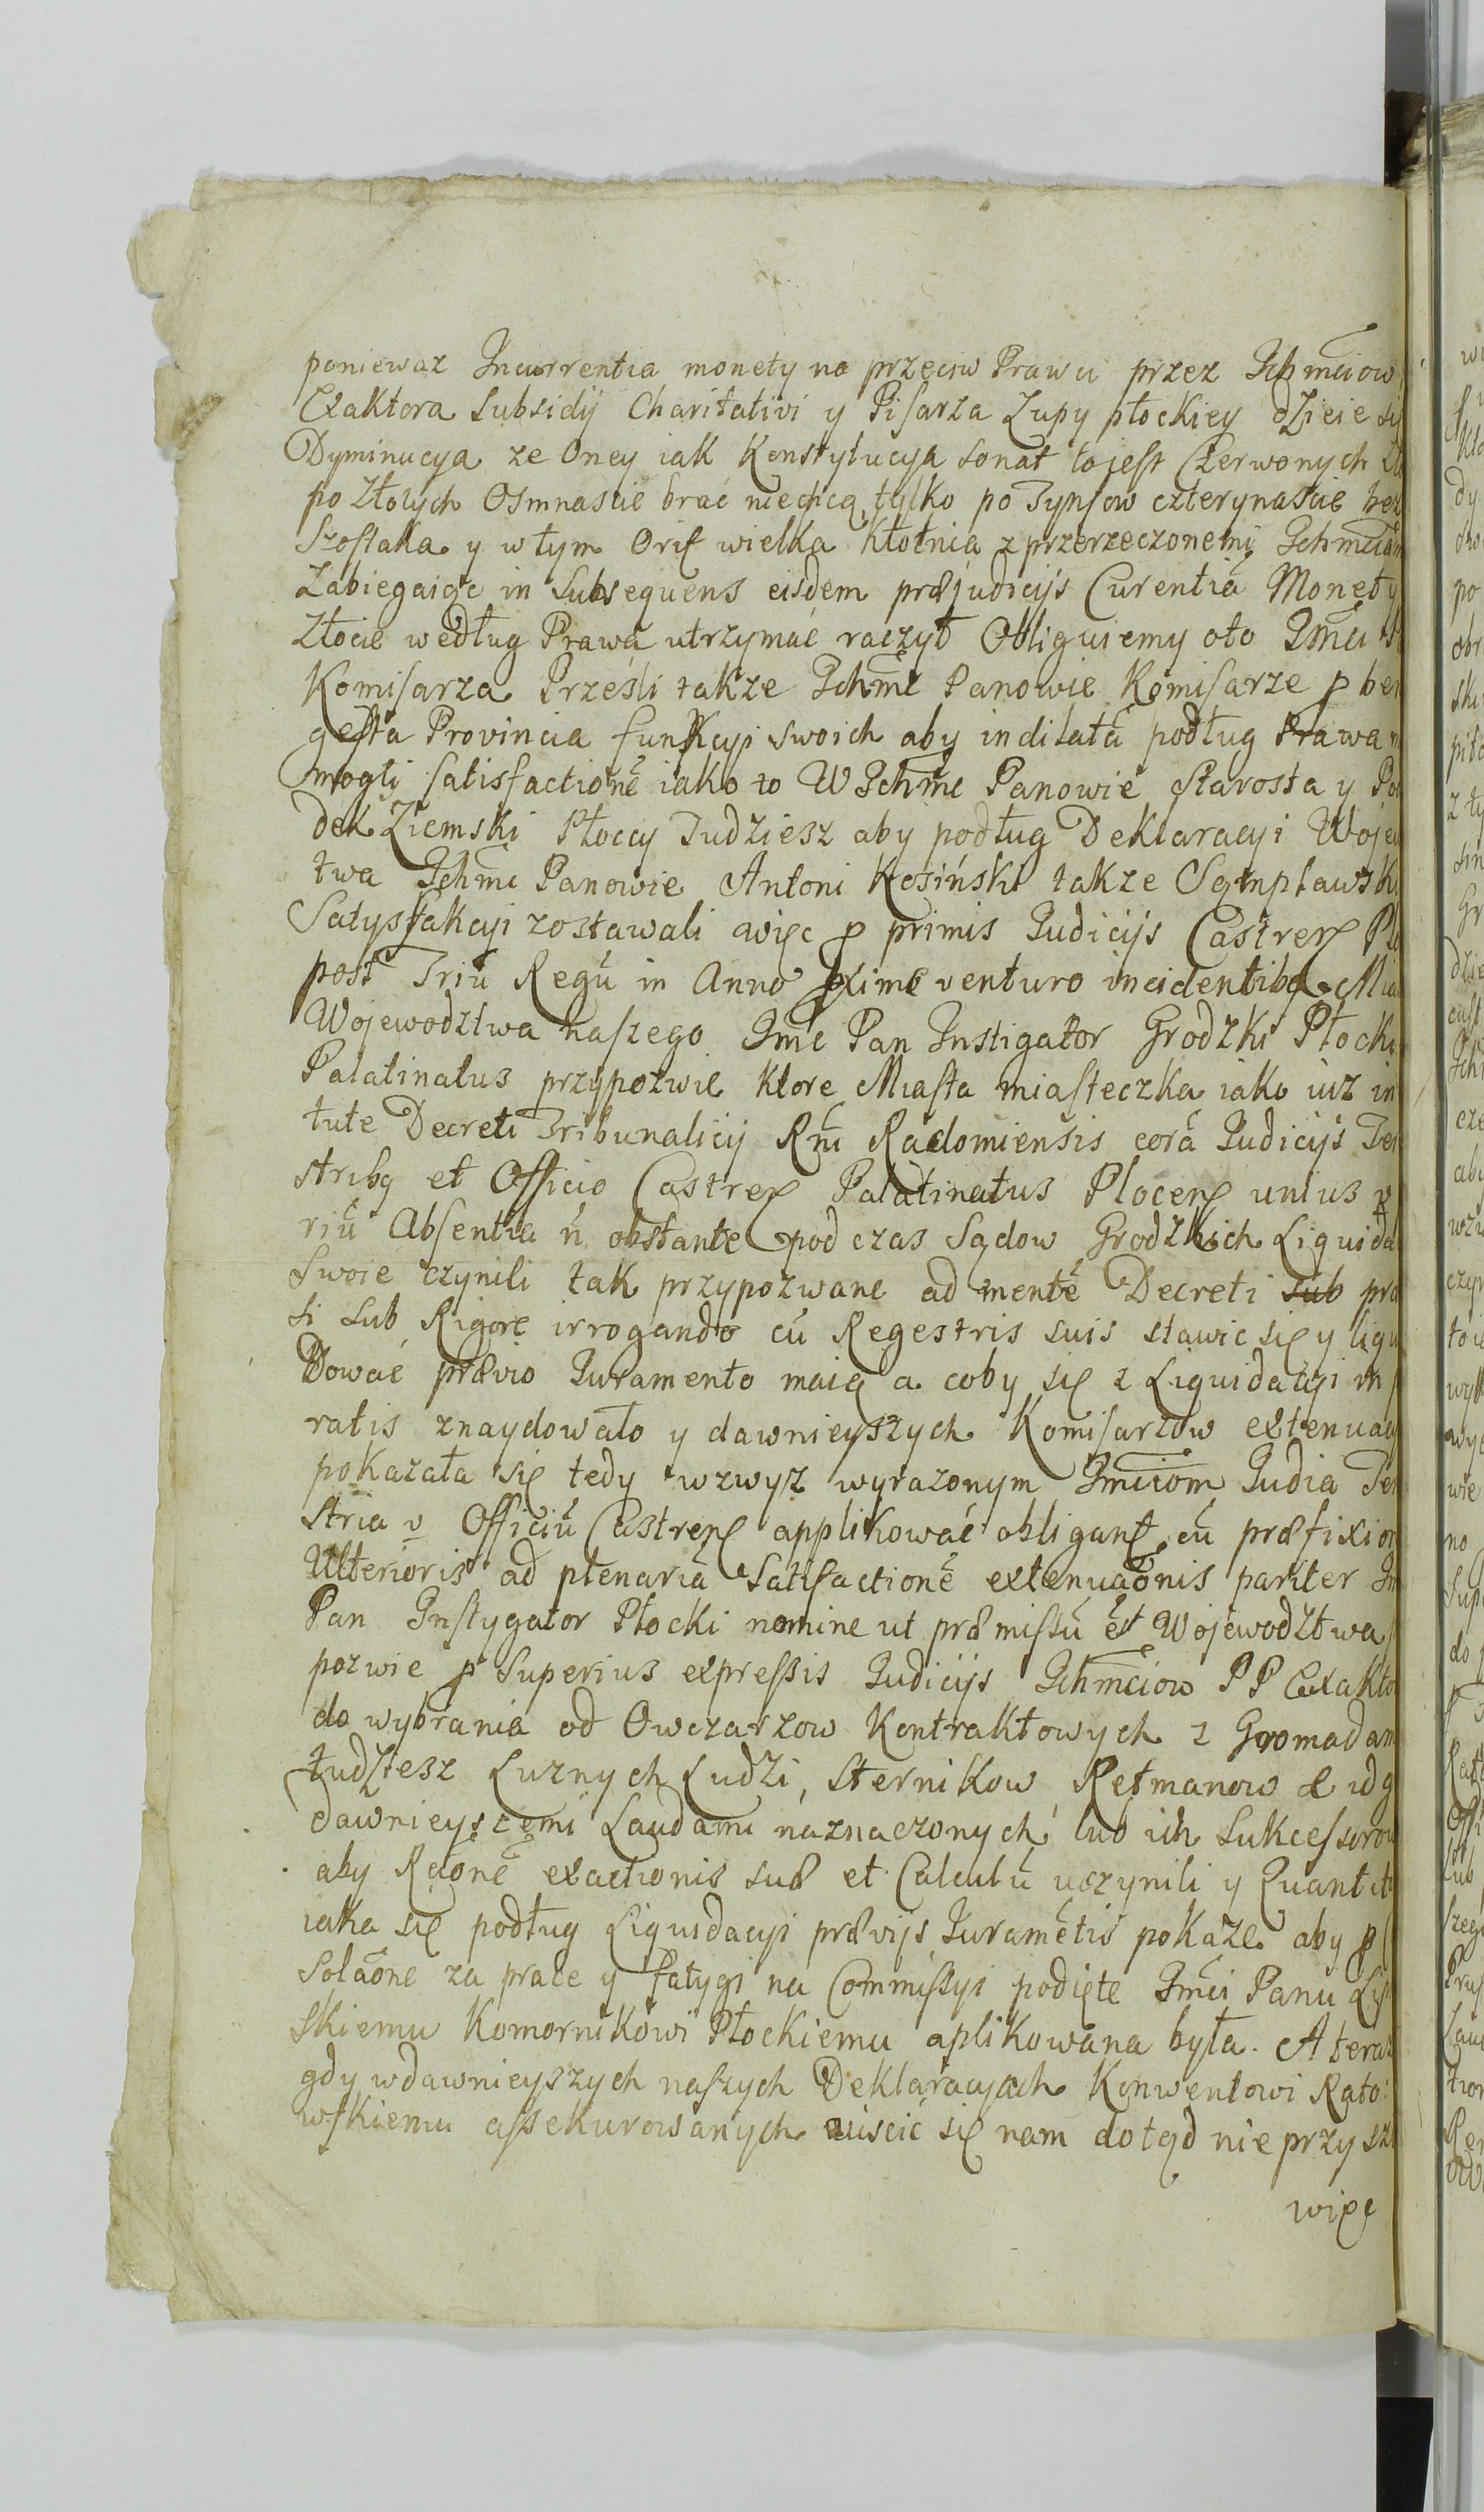 poniewaz Incurrentia monety na przeciw Prawu przez Ichmciow
Exaktora Subsidij Charitativi y Pisarza Zupy płockiey dzieie się
Dyminucya ze Oney iak Konstytucya sonat to jest Czerwonych Zł
po Złotych Osmnascie brać niechcą tylko po Tynfow czterynascie bez
Szostaka y w tym Orit wielka kłotnia z przerzeczonemi Ichmciam
Zabiegaiąc in Subsequens eisdem præjudicijs Curentiã Monety
Złocie według Prawa utrzymać raczył Obliguiemy oto Jmci
Komisarza Prześli takze Ichmc Panowie Komisarze p ben
gesta Provincia funkcyi swoich aby indilatã podług Prawa m
mogli satisfactionẽ iako to WIchmc Panowie Starosta y Po
dek Ziemski Płoccy Tudziesz aby podług Deklaracyi Wojew
twa Ichmc Panowie Antoni Kosiński takze Sęmpławski
Satysfakcyi zostawali więc p primis Iudicijs Castren Pło
post Triũ Regũ in Anno pxime venturo incidentibq Mia
Wojewodztwa naszego Jmc Pan Instigator Grodzki Płocki
Palatinatus przypozwie ktore Miasta miasteczka iako iuz in
tute Decreti Tribunalicij Rni Radomiensis corã Iudicijs Ter
stribq et Officio Castren Palatinatus Plocen unius v
riũ Absentia ñ obstante pod czas Sądow Grodzkich Liquida
Swoie czynili tak przypozwane ad mentẽ Decreti sub præ
si sub Rigore irrogando cũ Regestris suis stawic się y liqu
dować prævio Iuramento maią a coby się z Liquidacyi in
ratis znaydowało y dawnieyszych Komisarzow extenuacy
pokazała się tedy wzwysz wyrazonym Jmciom Iudicia Ter
stria v Officiũ Castren applikować obligant cũ præfixion
Ulterioris ad plenariã Satisfactionẽ extenuaõnis pariter Jm
Pan Instygator Płocki nomine ut præmissũ est Wojewodztwa
pozwie p Superius expressis Iudicijs Ichmciow PP Exakto
do wybrania od Owczarzow Kontraktowych z Gromadam
tudziesz Luznych Ludzi, Sternikow Retmanow & wdg
dawnieyszemi Laudami naznaczonych lub ich Sukcessorow
aby Rãonẽ exactionis suæ et Calculũ uczynili y Quantit
iaka się podług Liquidacyi prævijs Iuramẽtis pokaze aby p
Solãone za prace y fatygi na Commissyi podięte Jmci Panu Lis
skiemu Komornikowi Płockiemu aplikowana była. A teraz
gdy w dawnieyszych naszych Deklaracyach Konwentowi Rato:
wskiemu assekurowanych uiscić się nam dotąd nie przyszł
więc